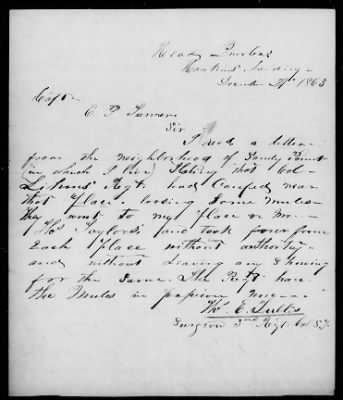 Head Quarters
Hawkins Landing
December 29th 1863
Capt
E. P. Turner
Sir
I recd a letter
from the neighborhood of Sandy Point
(in which I live) stating that Col
Regt. had Camped near
that place loosing some mules
they went to my place & Mr
Thos Taylors and took four from
Each place without authority
and without leaving any Showing
for the same. The Regt. have
the Mules in possession now
Thos. E.
Surgeon 3rd Regt